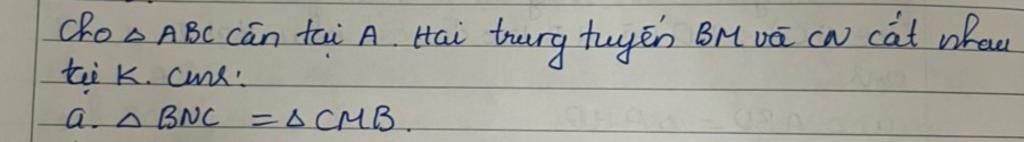 Cho △ ABC cân tại A. Hai trung tuyến BM và CN cắt nhau
tại K. cmr:
a. △ BNC = △ CMB.